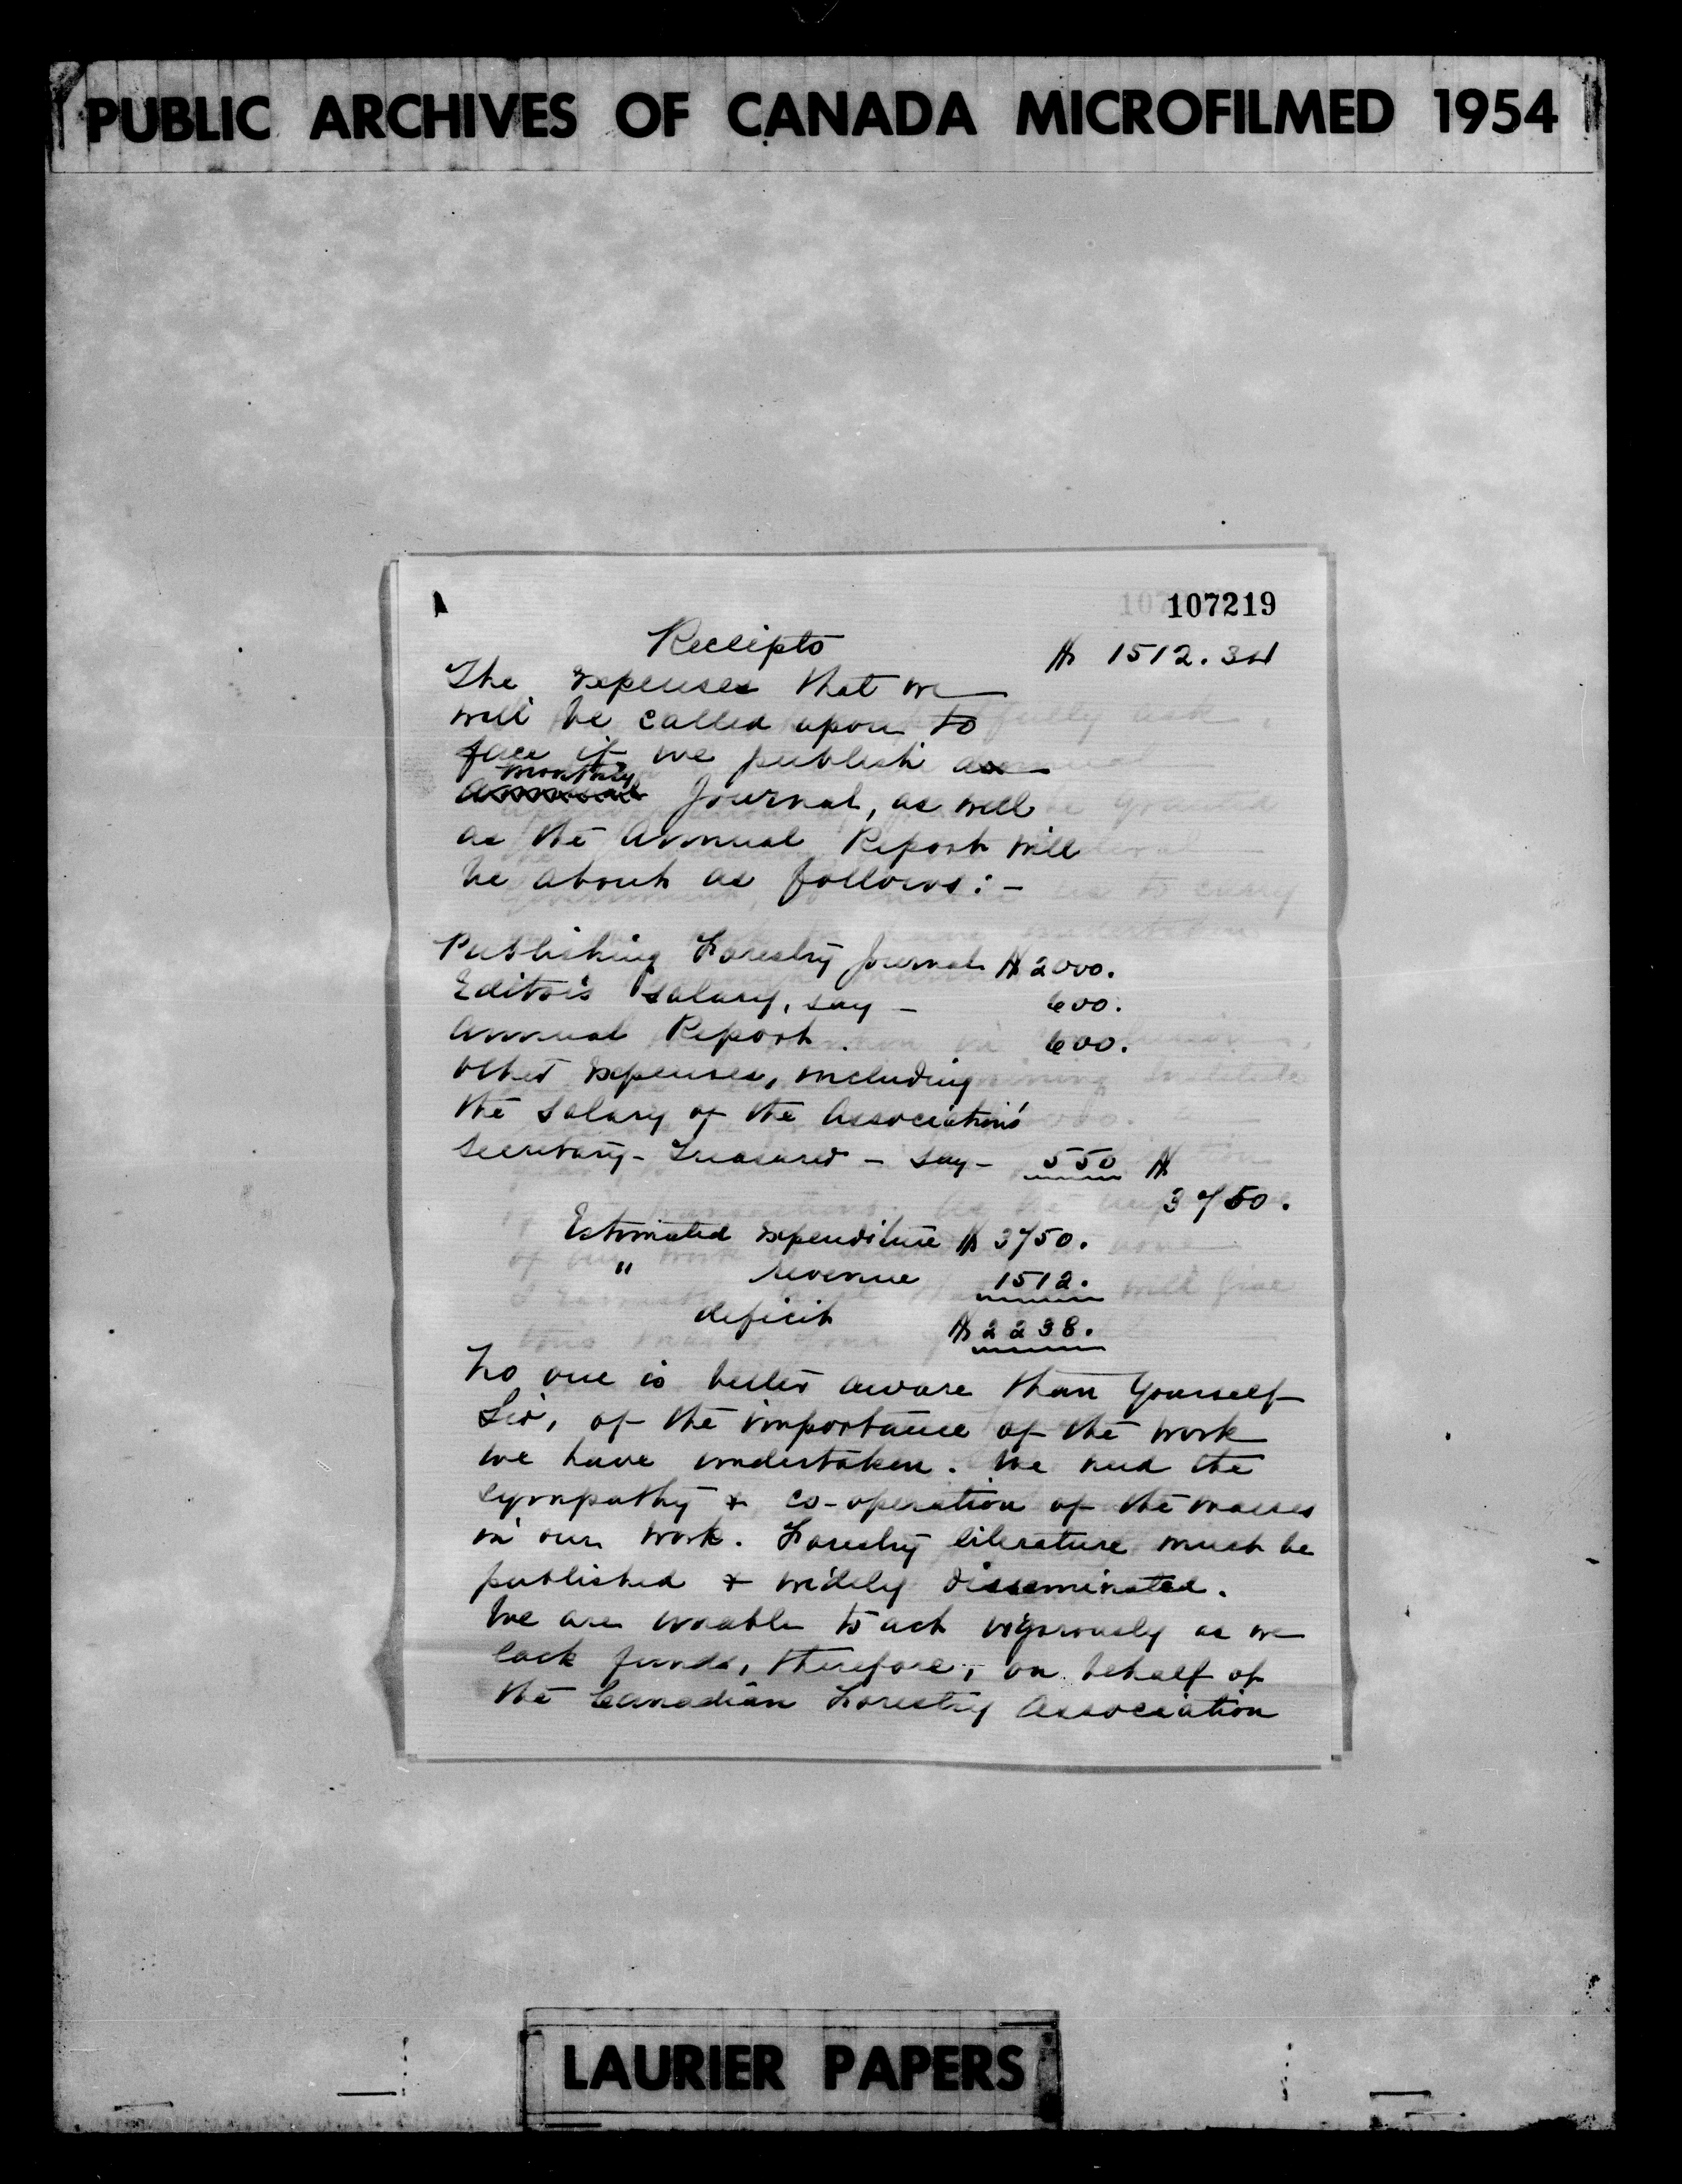 PUBLIC ARCHIVES OF CANADA MICROFILMED 1954
107219
Receipts $ 1512.34
The expenses that we
will be called upon to
face if we publish a
monthly
annual Journal, as well
as the Annual Report will
be about as follows:-
Publishing Forestry Journal $ 2000.
Editor's salary, say - 600.
Annual Report. 600.
Other expenses, including
the salary of the Association's
Secretary-Treasurer - say - 550 $
3750.
Estimated expenditure $ 3750.
" revenue 1512.
deficit $ 2238.
No one is better aware than Yourself
Sir, of the importance of the work
we have undertaken. We need the
sympathy & co-operation of the masses
in our work. Forestry literature must be
published & widely disseminated.
We are unable to act vigorously as we
lack funds, therefore, on behalf of
the Canadian Forestry Association
LAURIER PAPERS